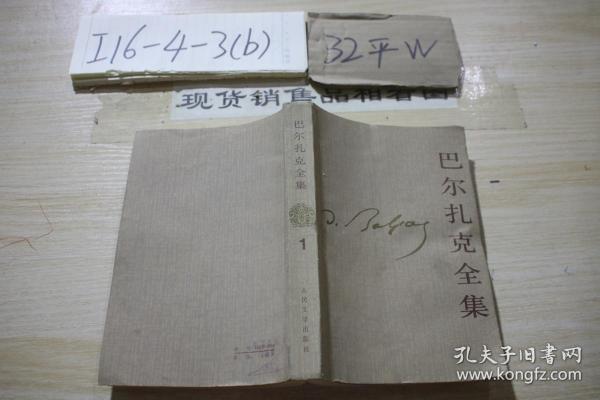 I16-4-3(b)
32平W
现货销售品相看图
巴尔扎克全集
1
人民文学出版社
巴尔扎克全集
D. Balzac
孔夫子旧书网
www.kongfz.com